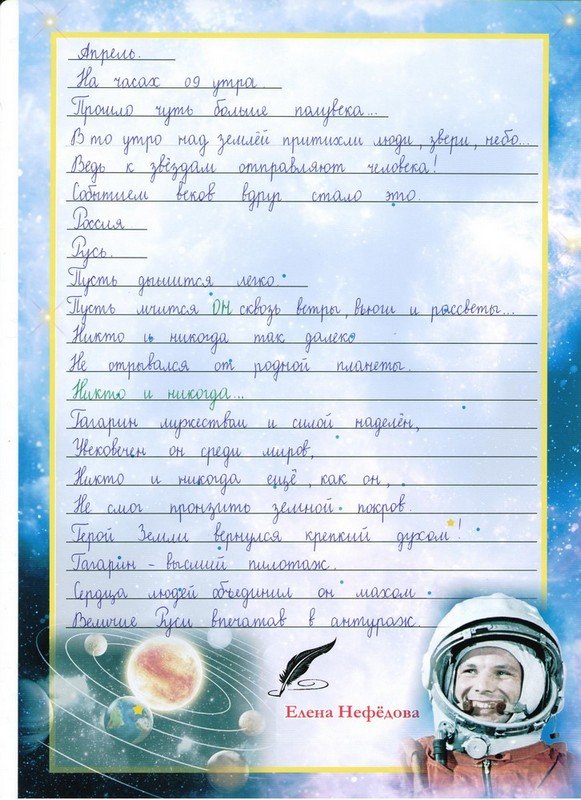 Апрель.
На часах 09 утра.
Прошло чуть больше полувека...
В то утро над землёй притихли люди, звери, небо...
Ведь к звёздам отправляют человека!
Событием веков вдруг стало это.
Россия.
Русь.
Пусть дышится легко.
Пусть мчится ОН сквозь ветры, вьюги и рассветы...
Никто и никогда так далеко
Не отрывался от родной планеты.
Никто и никогда...
Гагарин мужеством и силой наделён,
Увековечен он среди миров,
Никто и никогда ещё, как он,
Не смог пронзить земной покров.
Герой Земли вернулся крепкий духом!
Гагарин - высший пилотаж.
Сердца людей объединил он махом
Величие Руси впечатав в антураж.
Елена Нефёдова